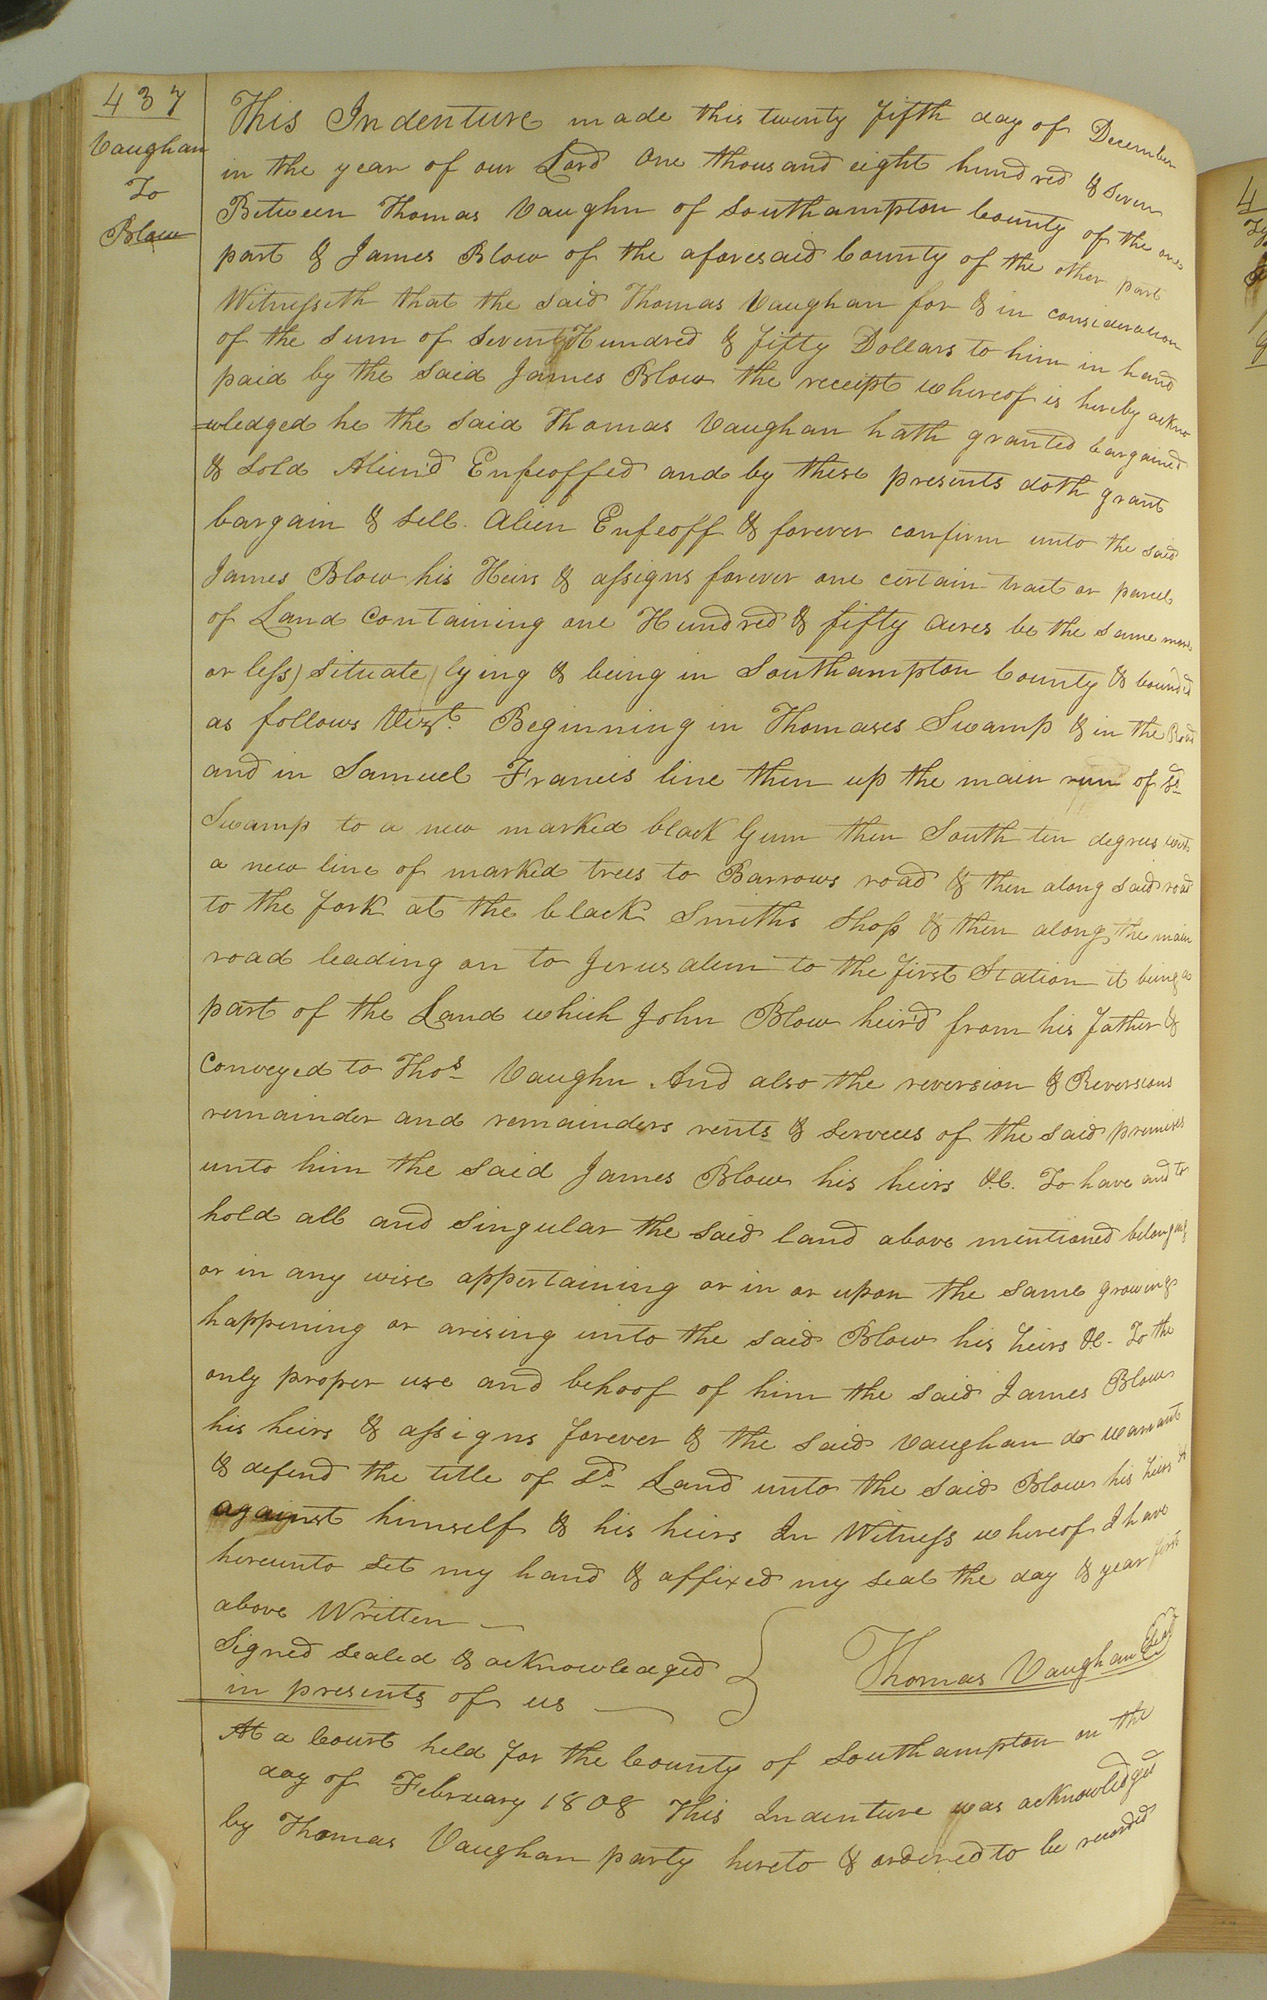 437
Vaughan
To
Blow
This Indenture made this twenty fifth day of December
in the year of our Lord one thousand eight hundred & Seven
Between Thomas Vaughn of Southampton County of the one
part & James Blow of the aforesaid County of the other part
Witnesseth that the said Thomas Vaughan for & in consideration
of the sum of Seventy Hundred & fifty Dollars to him in hand
paid by the said James Blow the receipt whereof is hereby ackno
=wledged he the said Thomas Vaughan hath granted bargained
& sold Alien'd Enfeoffed and by these presents doth grant
bargain & sell. Alien Enfeoff & forever confirm unto the said
James Blow his Heirs & assigns forever one certain tract or parcel
of Land Containing one Hundred & fifty acres be the same more
or less) situate lying & being in Southampton County & bounded
as follows Vizt Beginning in Thomases Swamp & in the Road
and in Samuel Francis line then up the main run of sd
Swamp to a new marked black Gum then South ten degrees west
a new line of marked trees to Barrows road & then along said road
to the fork at the black Smiths Shop & then along the main
road leading on to Jerusalem to the first Station it being a
part of the Land which John Blow heir'd from his father &
Conveyed to Thos Vaughn. And also the reversion & Reversions
remainder and remainders rents & services of the said premises
unto him the said James Blow his heirs &C. To have and to
hold all and singular the said land above mentioned belonging
or in any wise appertaining or in or upon the same growing
happening or arising unto the said Blow his heirs &C. To the
only proper use and behoof of him the said James Blow
his heirs & assigns forever & the said Vaughan do warrant
& defend the title of sd Land unto the said Blow his heirs &
against himself & his heirs In Witness whereof I have
hereunto set my hand & affixed my seal the day & year first
above Written
Signed sealed & acknowledged
in presents of us
Thomas Vaughan Seal
At a Court held for the County of Southampton on the
day of February 1808 This Indenture was acknowledged
by Thomas Vaughan party hereto & ordered to be recorded